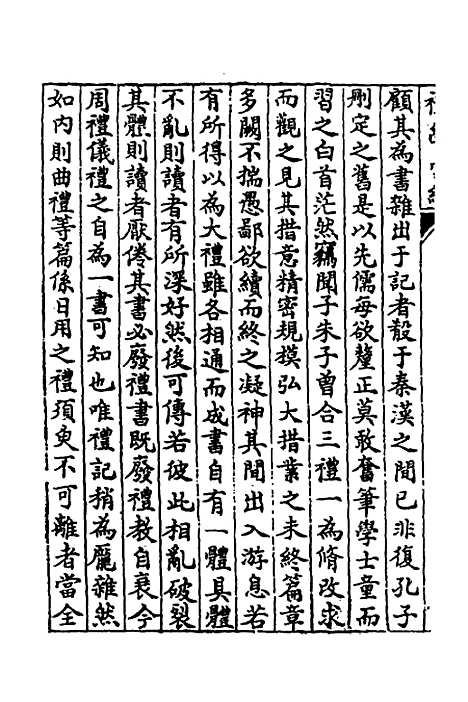 顧其為書雜出于記者殽于秦漢之間已非復孔子
刪定之舊是以先儒每欲釐正莫敢奮筆學士童而
習之白首茫然竊聞子朱子曾合三禮一為脩改求
而觀之見其措意精密規摸弘大措業之未終篇章
多闕不揣愚鄙欲續而終之凝神其間出入游息若
有所得以為大禮雖各相通而成書自有一體具體
不亂則讀者有所深好然後可傳若彼此相亂破裂
其體則讀者厭倦其書必廢禮書既廢禮教自衰今
周禮儀禮之自為一書可知也唯禮記稍為龎雜然
如內則曲禮等篇係日用之禮須臾不可離者當全